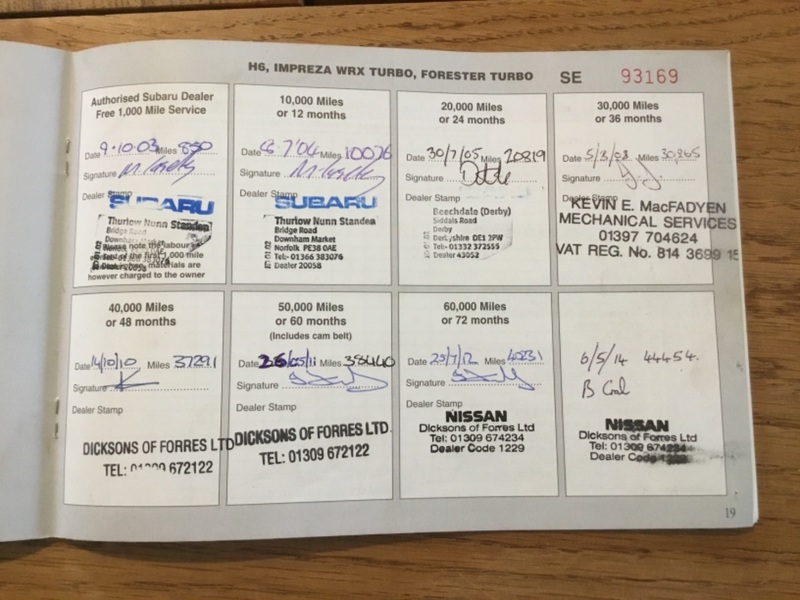 H6, IMPREZA WRX TURBO, FORESTER TURBO SE 93169
Authorised Subaru Dealer
Free 1,000 Mile Service
Date 9.10.03 Miles 850
Signature
Dealer Stamp
SUBARU
Thurlow Nunn Standen
Bridge Road
Downham Market
Please note the labour
of the first 1,000 mile
materials are
however charged to the owner
10,000 Miles
or 12 months
Date 8 7'04 Miles 10076
Signature
Dealer Stamp
SUBARU
Thurlow Nunn Standen
Bridge Road
Downham Market
Norfolk PE38 0AE
Tel:- 01366 383076
Dealer 20058
20,000 Miles
or 24 months
Date 30/7/05 Miles 20819
Signature
Dealer Stamp
Beechdale (Derby)
Siddals Road
Derby
Derbyshire DE1 2PW
Tel:- 01332 372555
Dealer 43052
30,000 Miles
or 36 months
Date 5/3/08 Miles 30,865
Signature
Dealer Stamp
KEVIN E. MacFADYEN
MECHANICAL SERVICES
01397 704624
VAT REG. No. 814 3699 15
40,000 Miles
or 48 months
Date 14/10/10 Miles 37291
Signature
Dealer Stamp
DICKSONS OF FORRES LTD
TEL: 672122
50,000 Miles
or 60 months
(Includes cam belt)
Date 26/05/11 Miles 38440
Signature
Dealer Stamp
DICKSONS OF FORRES LTD
TEL: 01309 672122
60,000 Miles
or 72 months
Date 25/7/12 Miles 40231
Signature
Dealer Stamp
NISSAN
Dicksons of Forres Ltd
Tel: 01309 674234
Dealer Code 1229
6/5/14 44454.
NISSAN
Dicksons of Forres Ltd
Tel: 01309 674234
Dealer Code 1229
19